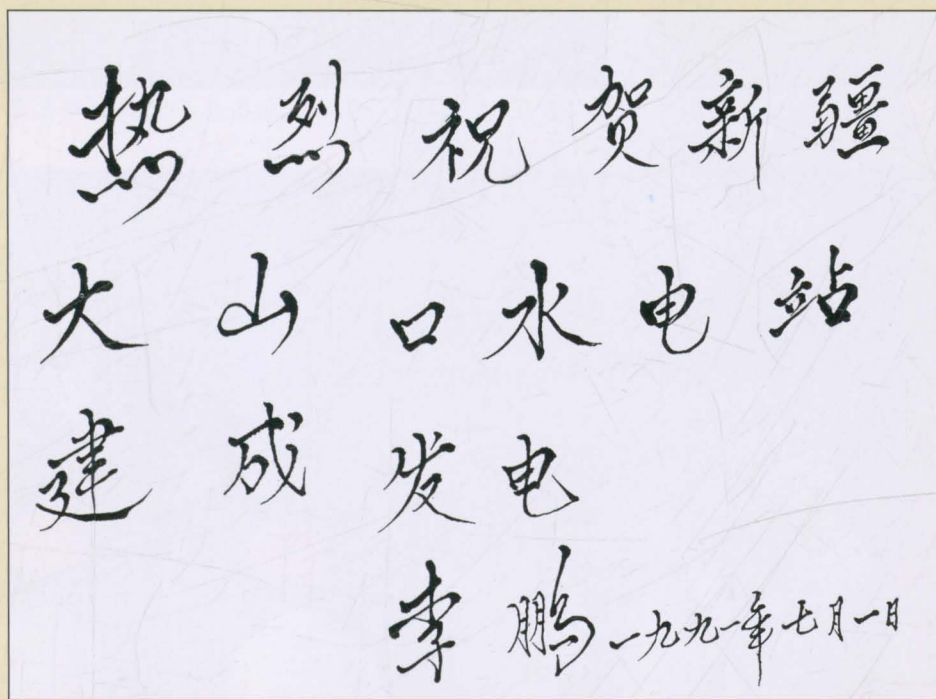 热烈祝贺新疆
大山口水电站
建成发电
李鹏 一九九一年七月一日